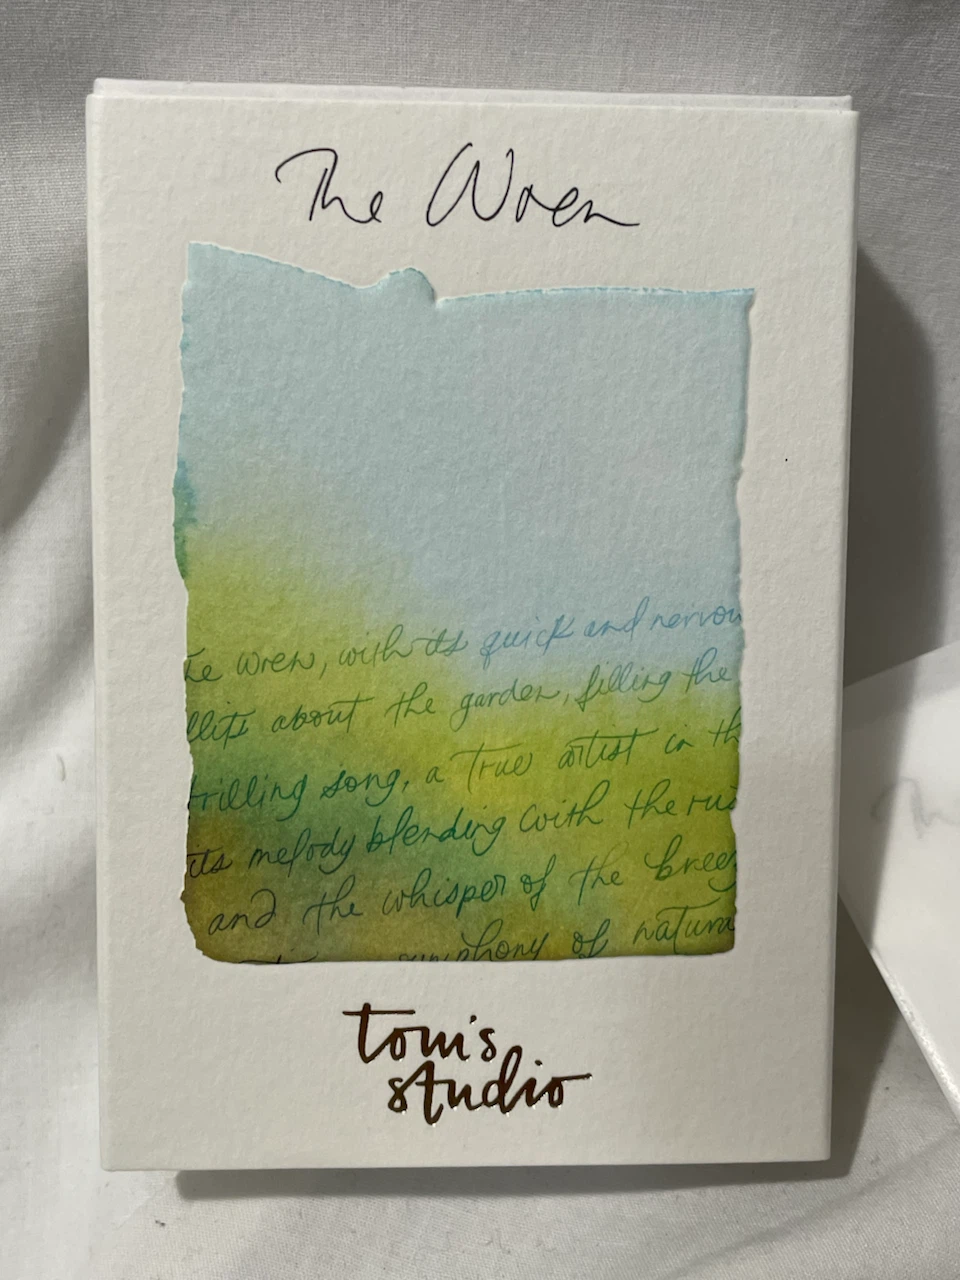 The Wren
he wren, with its quick and nervou
flits about the garden, filling the
trilling song, a true artist in th
its melody blending with the rus
and the whisper of the breez
symphony of natura
tom's
studio